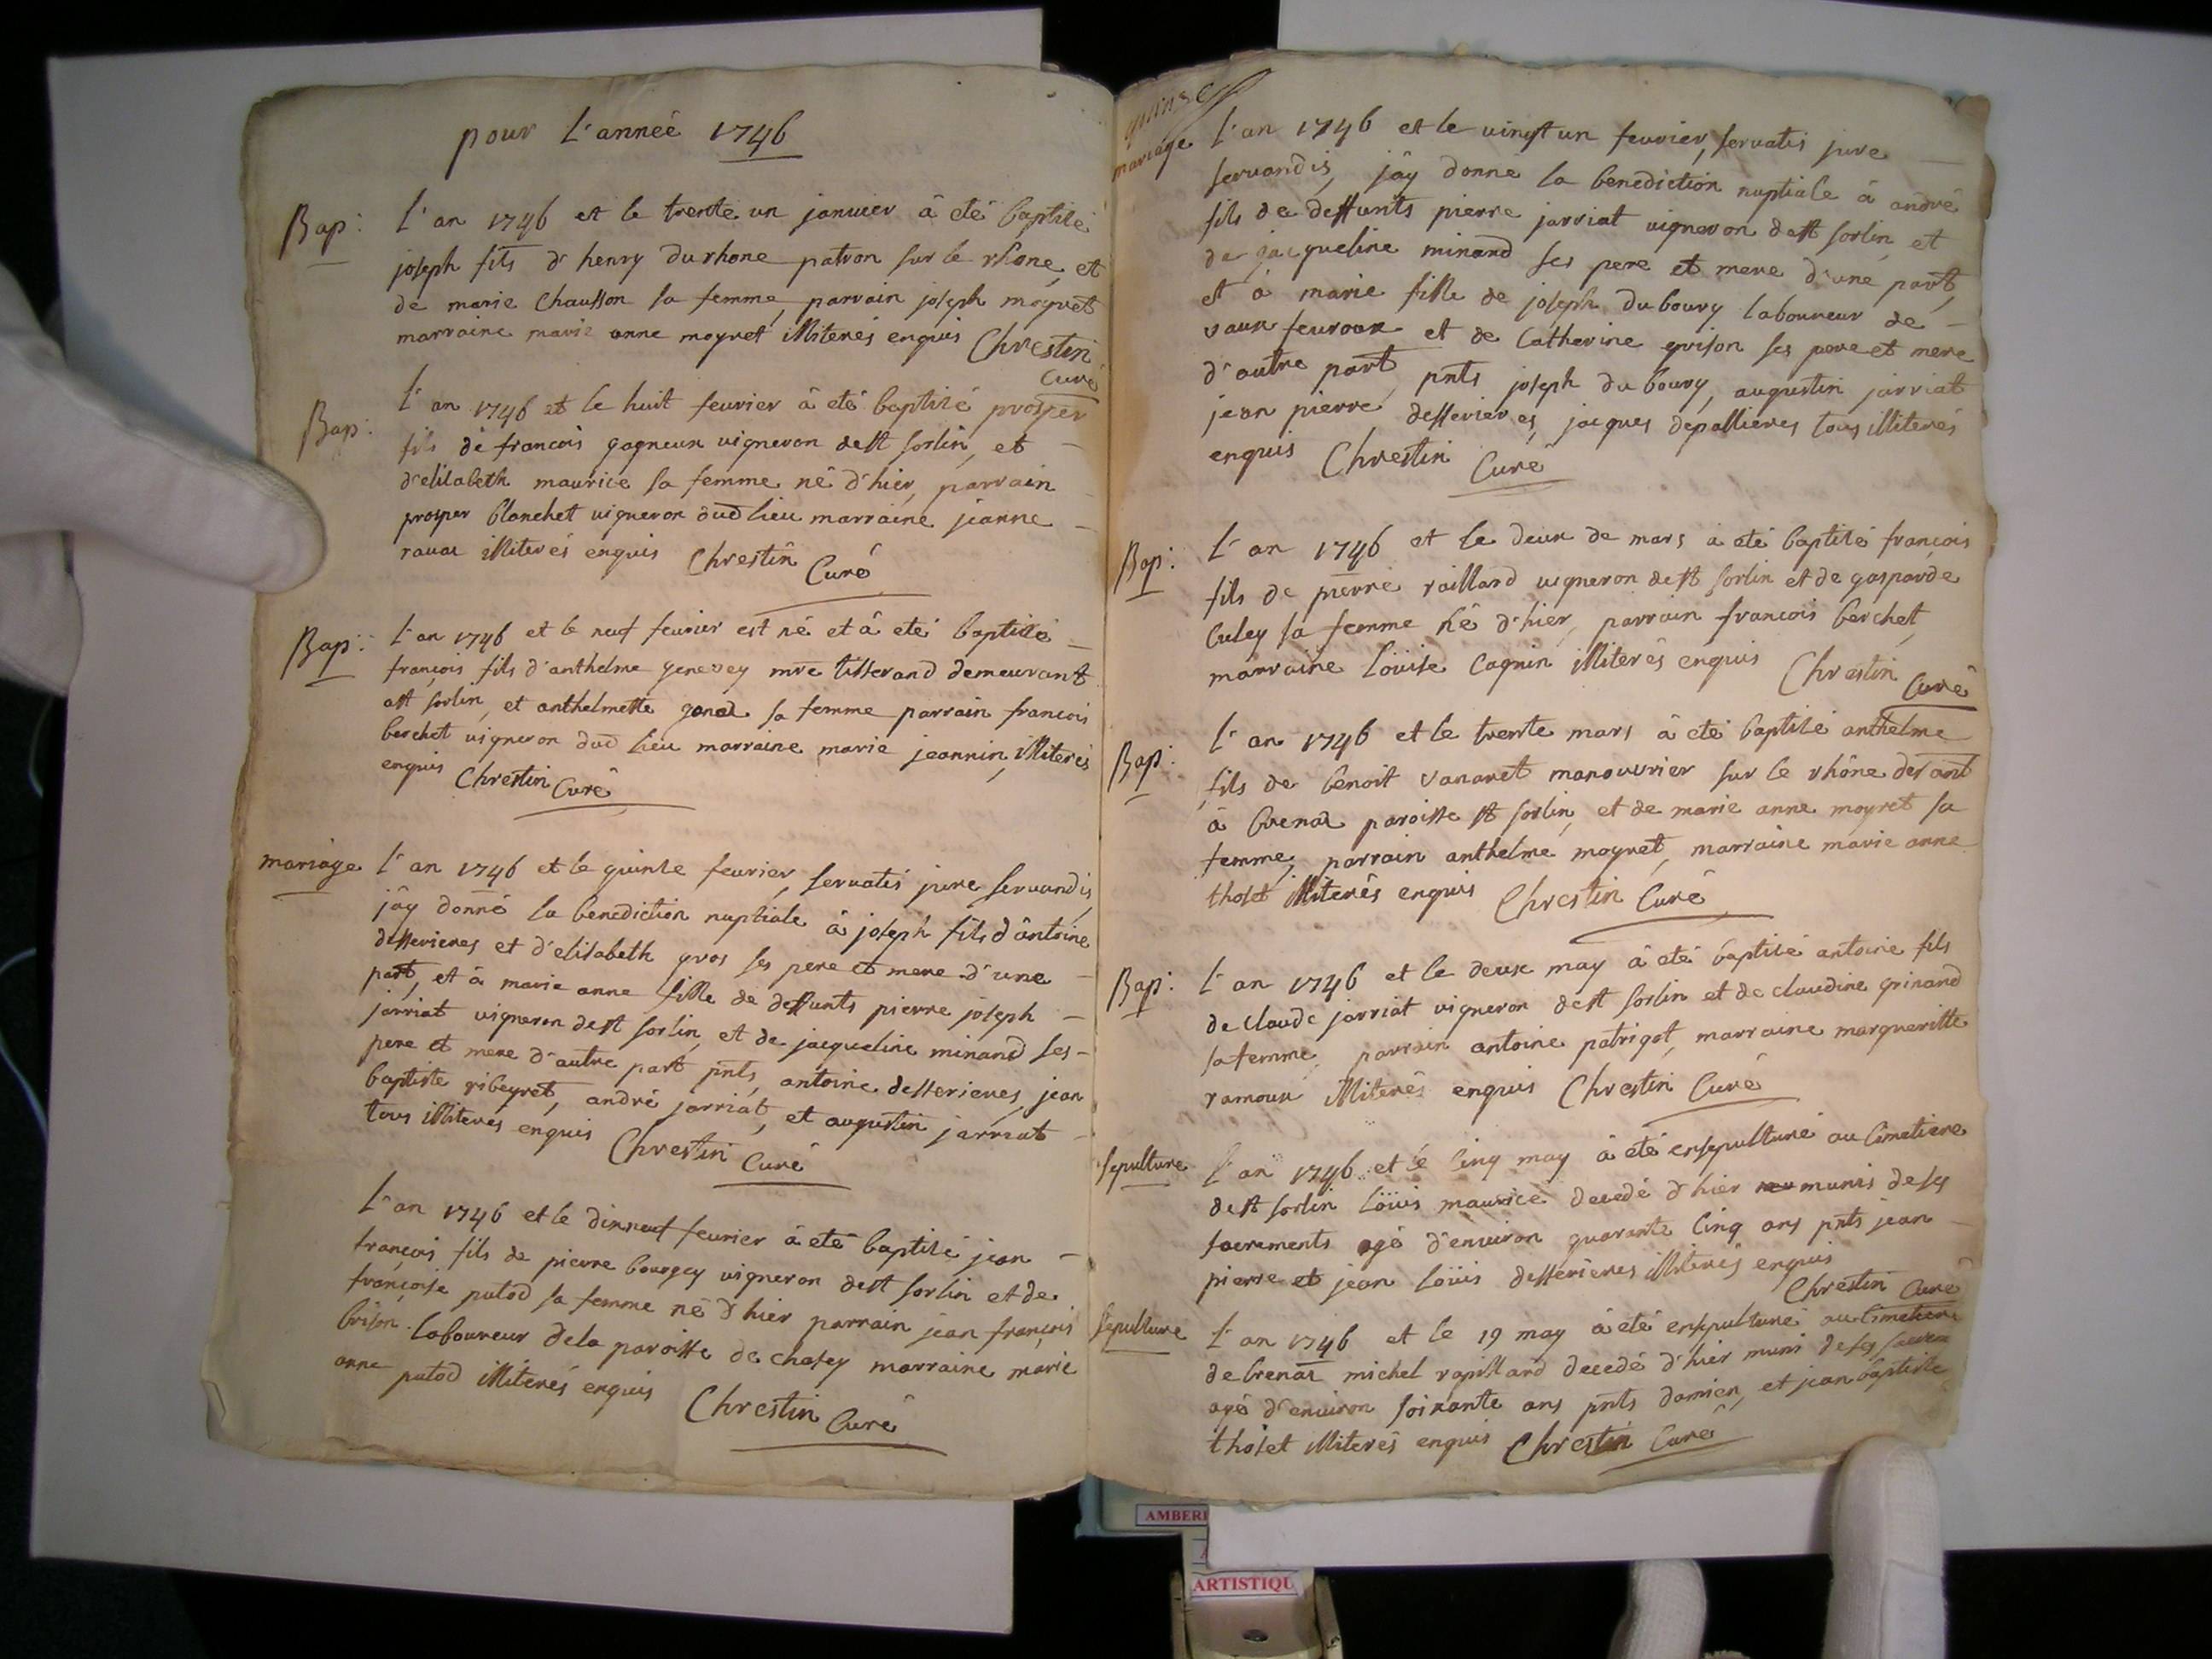 pour l'anneé 1746
Bap: L'an 1746 et le trente un januier â eté baptisé
joseph fils d'henry durhone patron sur le rhône, et
de marie chausson sa femme, parrain joseph moyret
marraine marie anne moyret illiterés enquis Chrestin
Curé
Bap: L'an 1746 et le huit feurier â eté baptisé prosper
fils de francois gagneux uigneron de st sorlin, et
d'elisabeth maurice sa femme né d'hier, parrain
prosper blanchet uigneron dud lieu marraine jeanne
rauaz illiterés enquis Chrestin Curé
Bap: L'an 1746 et le neuf feurier est né et â eté baptisé
françois fils d'anthelme genevey mre tisserand demeurant
a st sorlin, et anthelmette sa femme parrain francois
berchet uigneron dud lieu marraine marie jeannin, illiterés
enquis Chrestin Curé
mariage L'an 1746 et le quinse feurier, seruatis jure seruandis,
j'ây donné la benediction nuptiale â joseph fils d'ântoine
desserieres et d'elisabeth gros ses pere et mere d'une
part, et â marie anne fille de deffunts pierre joseph
jarriat uigneron de st sorlin, et de jacqueline minand ses
pere et mere d'autre part pnts, antoine desserieres, jean
baptiste ribeyret, andré jarriat, et augustin jarriat
tous illiterés enquis Chrestin Curé
L'an 1746 et le dixneuf feurier â eté baptisé jean
françois fils de pierre bourgey uigneron de st sorlin et de
françoise putod sa femme né d'hier parrain jean françois
brison laboureur dela paroisse de chasey marraine marie
anne putod illiterés enquis Chrestin Curé
quinse
mariage L'an 1746 et le uingt un feurier, seruatis jure
seruandis, j'ây donné la benediction nuptiale â andré
fils de deffunts pierre jarriat uigneron de st sorlin, et
de jacqueline minand ses pere et mere d'une part,
et â marie fille de joseph dubourg laboureur de
vaux feuroux et de Catherine grison ses pere et mere
d'autre part, pnts joseph dubourg, augustin jarriat
jean pierre desserieres, jacques depallieres tous illiterés
enquis Chrestin Curé
Bap: L'an 1746 et le deux de mars a eté baptisé françois
fils de pierre raillard uigneron de st sorlin et de gasparde
Culey sa femme né d'hier, parrain francois berchet,
marraine Loüise Cagnin illiterés enquis Chrestin Curé
Bap: L'an 1746 et le trente mars â eté baptisé anthelme
fils de benoit vanaret manouurier sur le rhône
â brenaz paroisse st sorlin, et de marie anne moyret sa
femme, parrain anthelme moyret, marraine marie anne
tholet illiterés enquis Chrestin Curé
Bap: L'an 1746 et le deux may â eté baptisé antoine fils
de claude jarriat uigneron de st sorlin et de claudine grinand
sa femme parrain antoine patrigot, marraine margueritte
ramoux illiterés enquis Chrestin Curé
sepulture L'an 1746 et le cinq may â eté ensepulturé au Cimetiere
de st sorlin Loüis maurice decedé d'hier munis de ses
sacrements agé d'enuiron quarante Cinq ans pnts jean
pierre et jean Loüis desserieres illiterés enquis
Chrestin Curé
sepulture L'an 1746 et le 19 may â eté ensepulturé au Cimetiere
de brenaz michel rapillard decedé d'hier muni de ses
agé d'enuiron soixante ans pnts damien, et jean baptiste
tholet illiterés enquis Chrestin Curé
AMBERI
ARTISTIQU